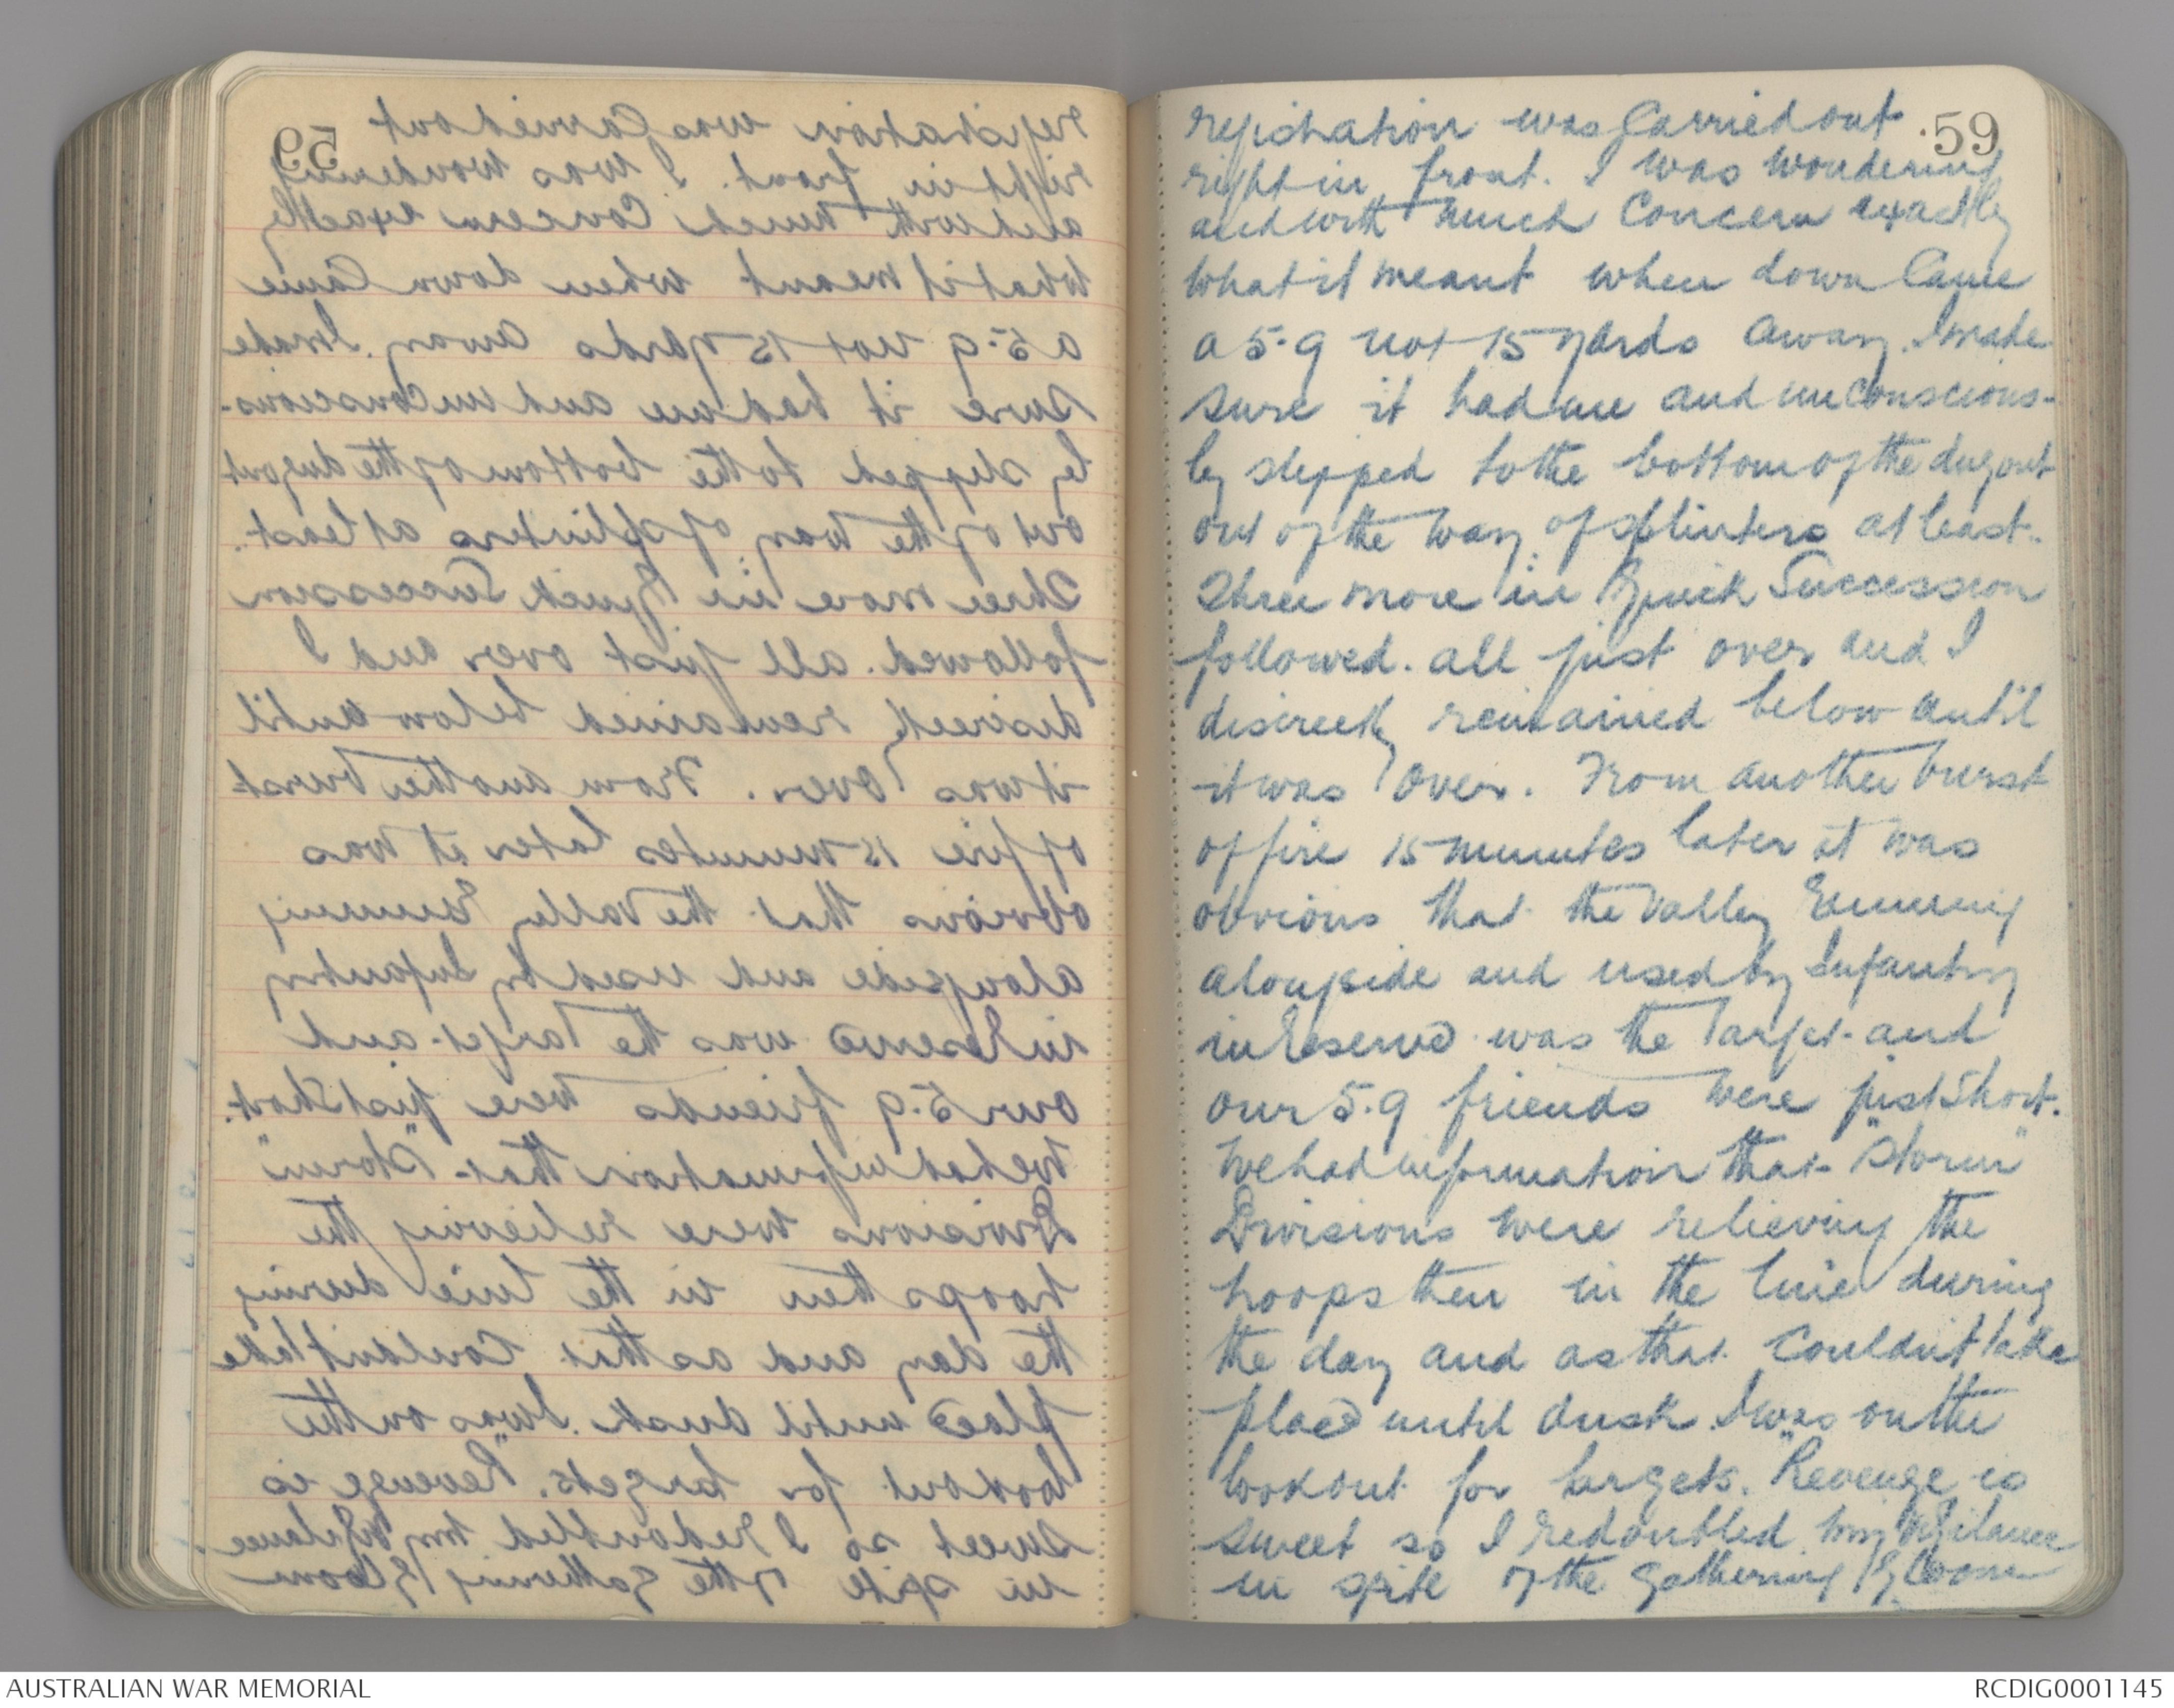 59
registration was carried out
right in front. I was wondering
and with much concern exactly
what it meant when down came
a 5.9 not 15 yards away. I made
sure it had me and unconscious-
ly stepped to the bottom of the dugout
out of the way of splinters at least.
Three more in quick succession
followed. all just over and I
discreetly remained below until
it was over. From another burst
of fire 15 minutes later it was
obvious that the valley running
alongside and used by Infantry
in Reserve was the target and
our 5.9 friends were just short.
We had information that "Storm"
Divisions were relieving the
troops then in the line during
the day and as that couldn't take
place until dusk I was on the
lookout for targets. "Revenge is
sweet so I redoubled my vigilance
in spite of the gathering gloom
AUSTRALIAN WAR MEMORIAL
RCDIG0001145